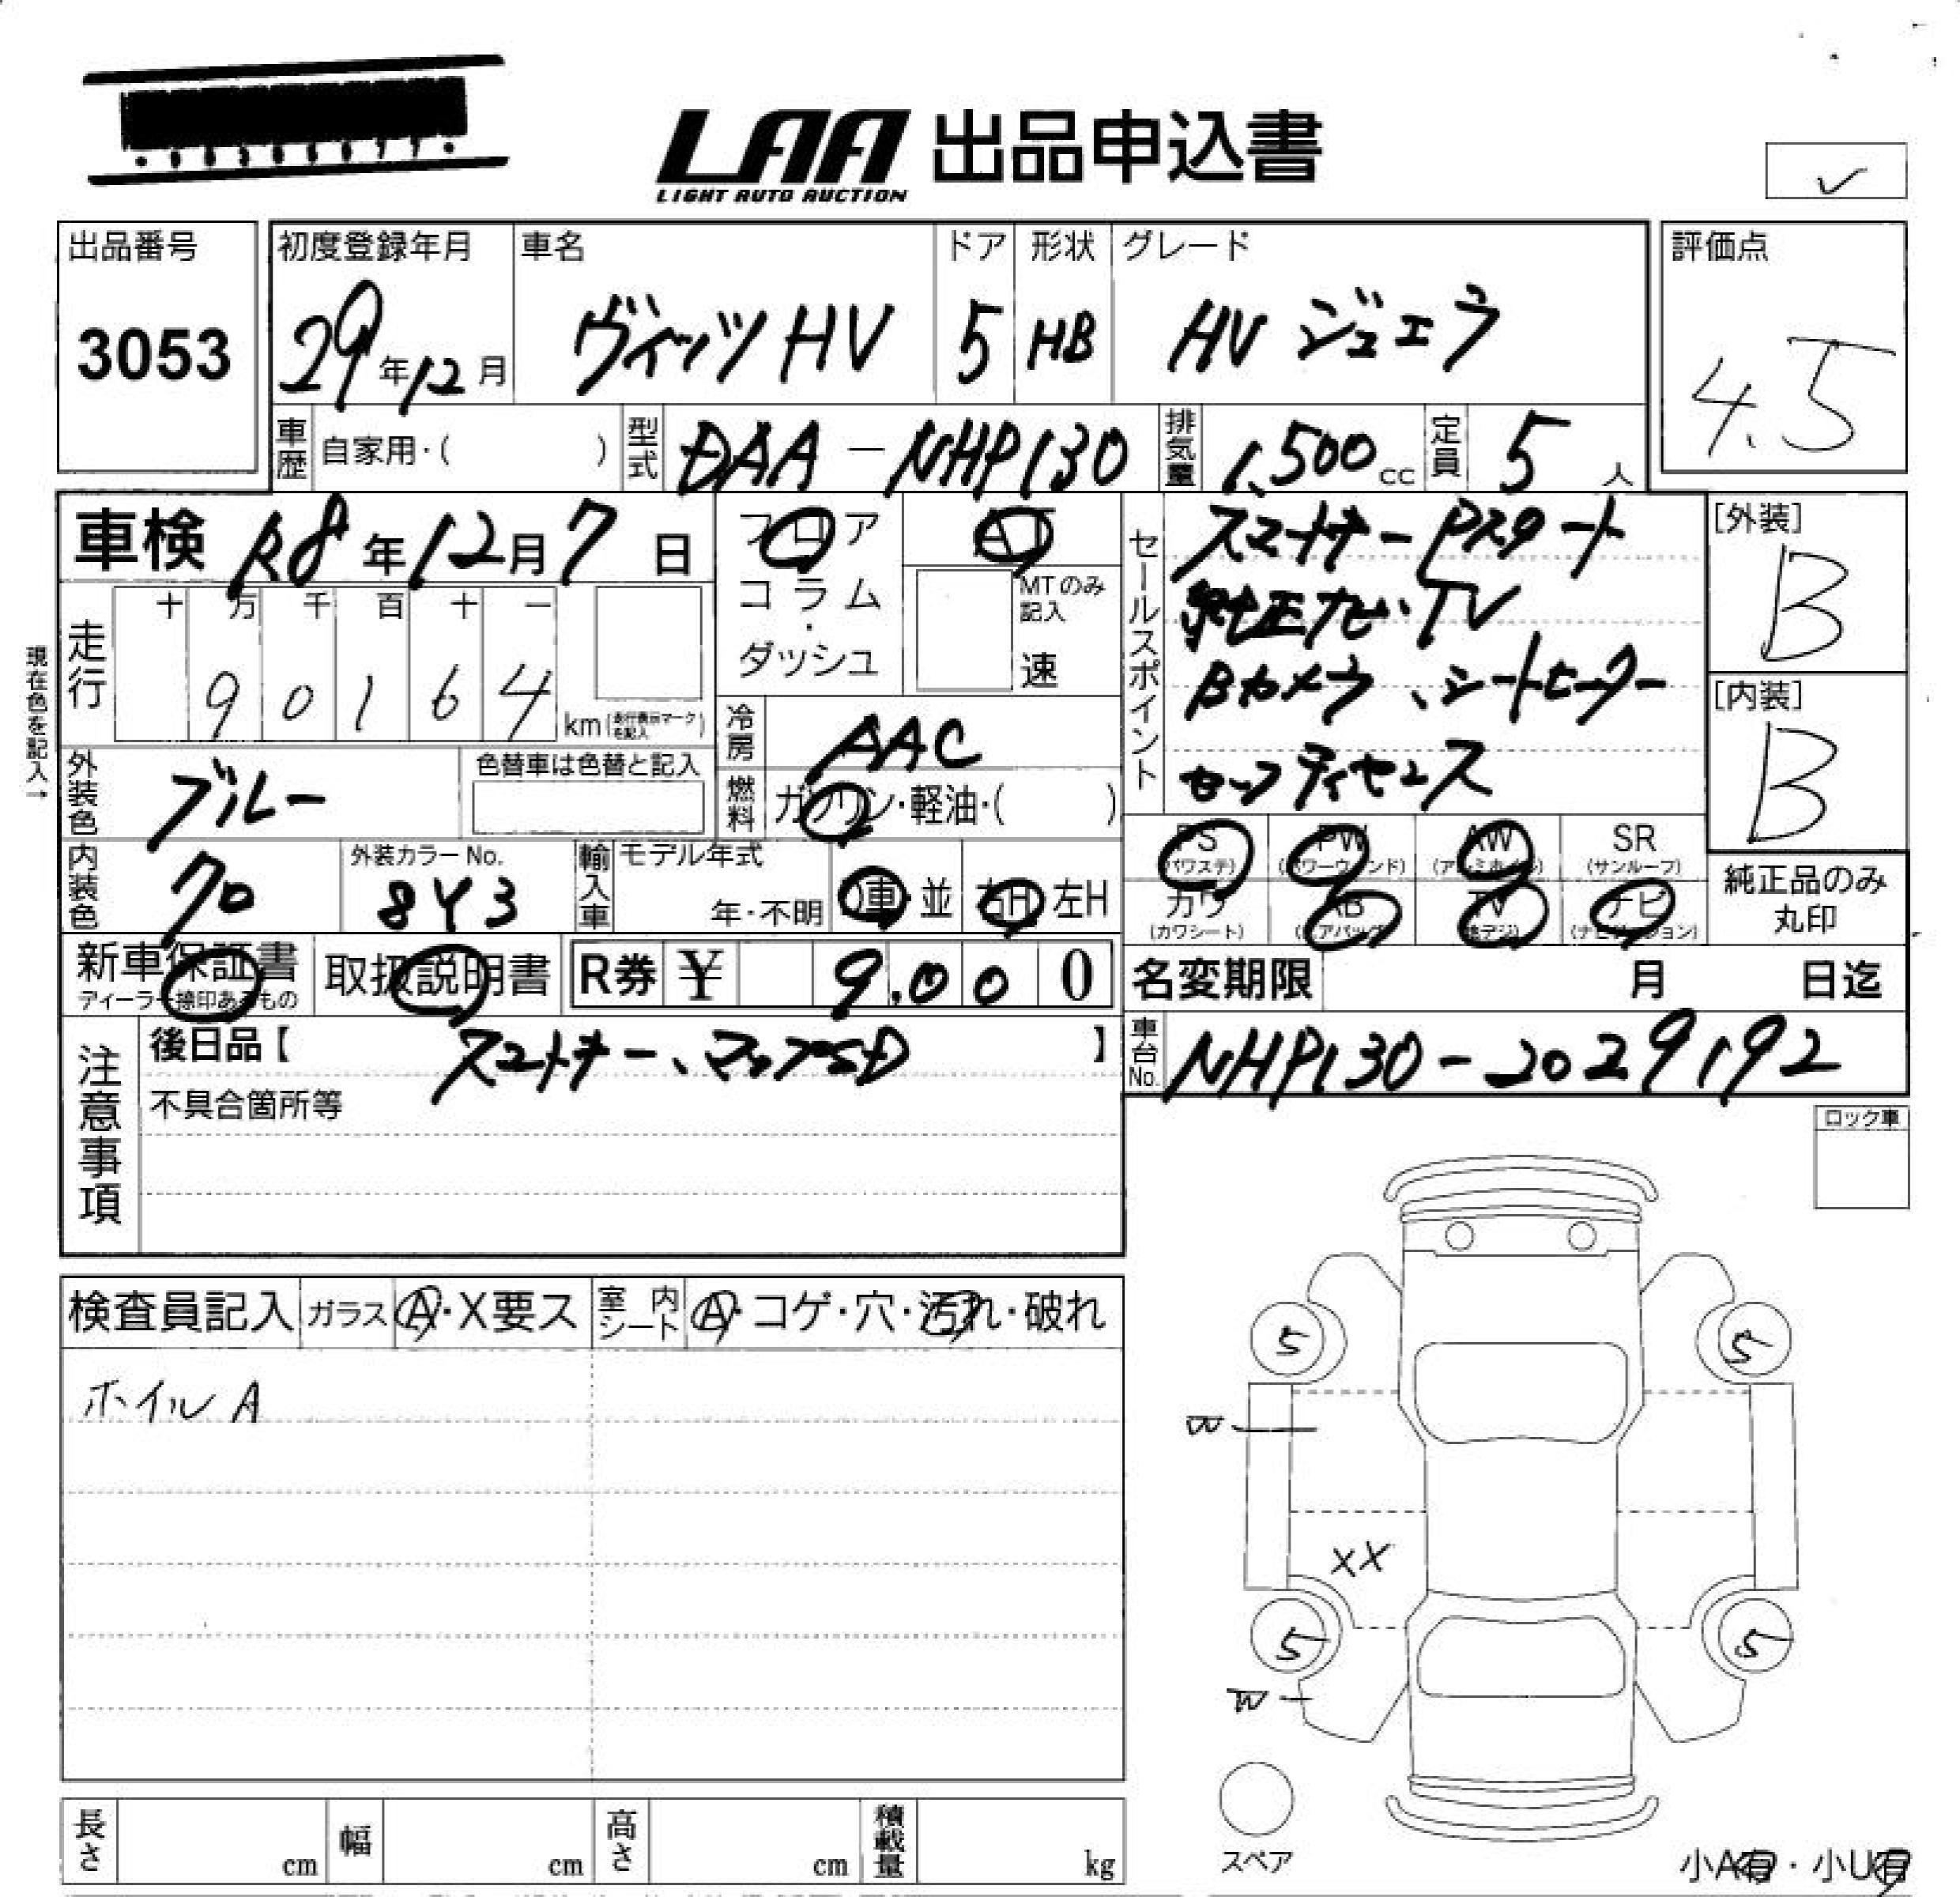 LAA 出品申込書
LIGHT AUTO AUCTION
出品番号
3053
初度登録年月
29年12月
車名
ヴィッツHV
ドア
5
形状
HB
グレード
HV ジュエラ
評価点
4.5
車歴 自家用・( )
型式 DAA-NHP130
排気量 1,500cc
定員 5人
車検 R8年12月7日
現在色を記入→
走行
十 万 千 百 十 一
9 0 1 6 4 km (走行表示マークを記入)
フロア
コラム
・
ダッシュ
AT
MTのみ記入
速
冷房 AAC
燃料 ガソリン・軽油・( )
セールスポイント
スマートキー Pスタート
純正ナビ・TV
Bカメラ、シートヒーター
セーフティセンス
[外装]
B
[内装]
B
外装色 ブルー
色替車は色替と記入
内装色 クロ
外装カラーNo.
8Y3
輸入車
モデル年式
年・不明
D車・並
右H 左H
PS (パワステ)
PW (パワーウィンド)
AW (アルミホイル)
SR (サンルーフ)
カワ (カワシート)
AB (エアバッグ)
TV (地デジ)
ナビ (ナビゲーション)
純正品のみ
丸印
新車保証書
ディーラー捺印あるもの
取扱説明書
R券 ¥ 9,000
名変期限 月 日迄
注意事項
後日品【 スマートキー、マップSD 】
不具合箇所等
車台No. NHP130-2029192
ロック車
検査員記入
ガラス A・X要ス
室内シート A・コゲ・穴・汚れ・破れ
ホイルA
5
5
W
XX
5
5
W
スペア
長さ cm
幅 cm
高さ cm
積載量 kg
小A有・小U有